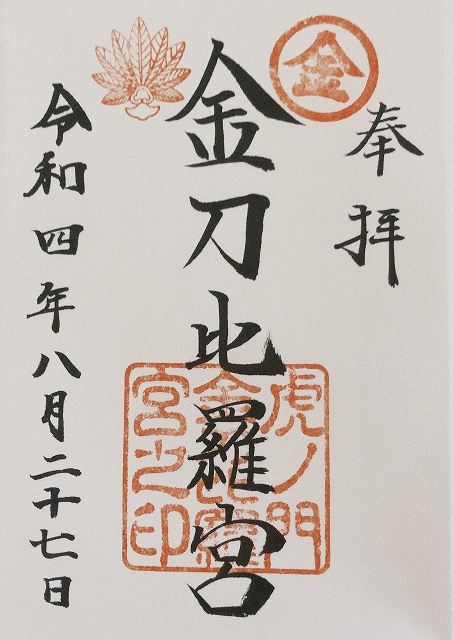 奉拝
金
金刀比羅宮
虎ノ門
金刀比羅
宮之印
令和四年八月二十七日